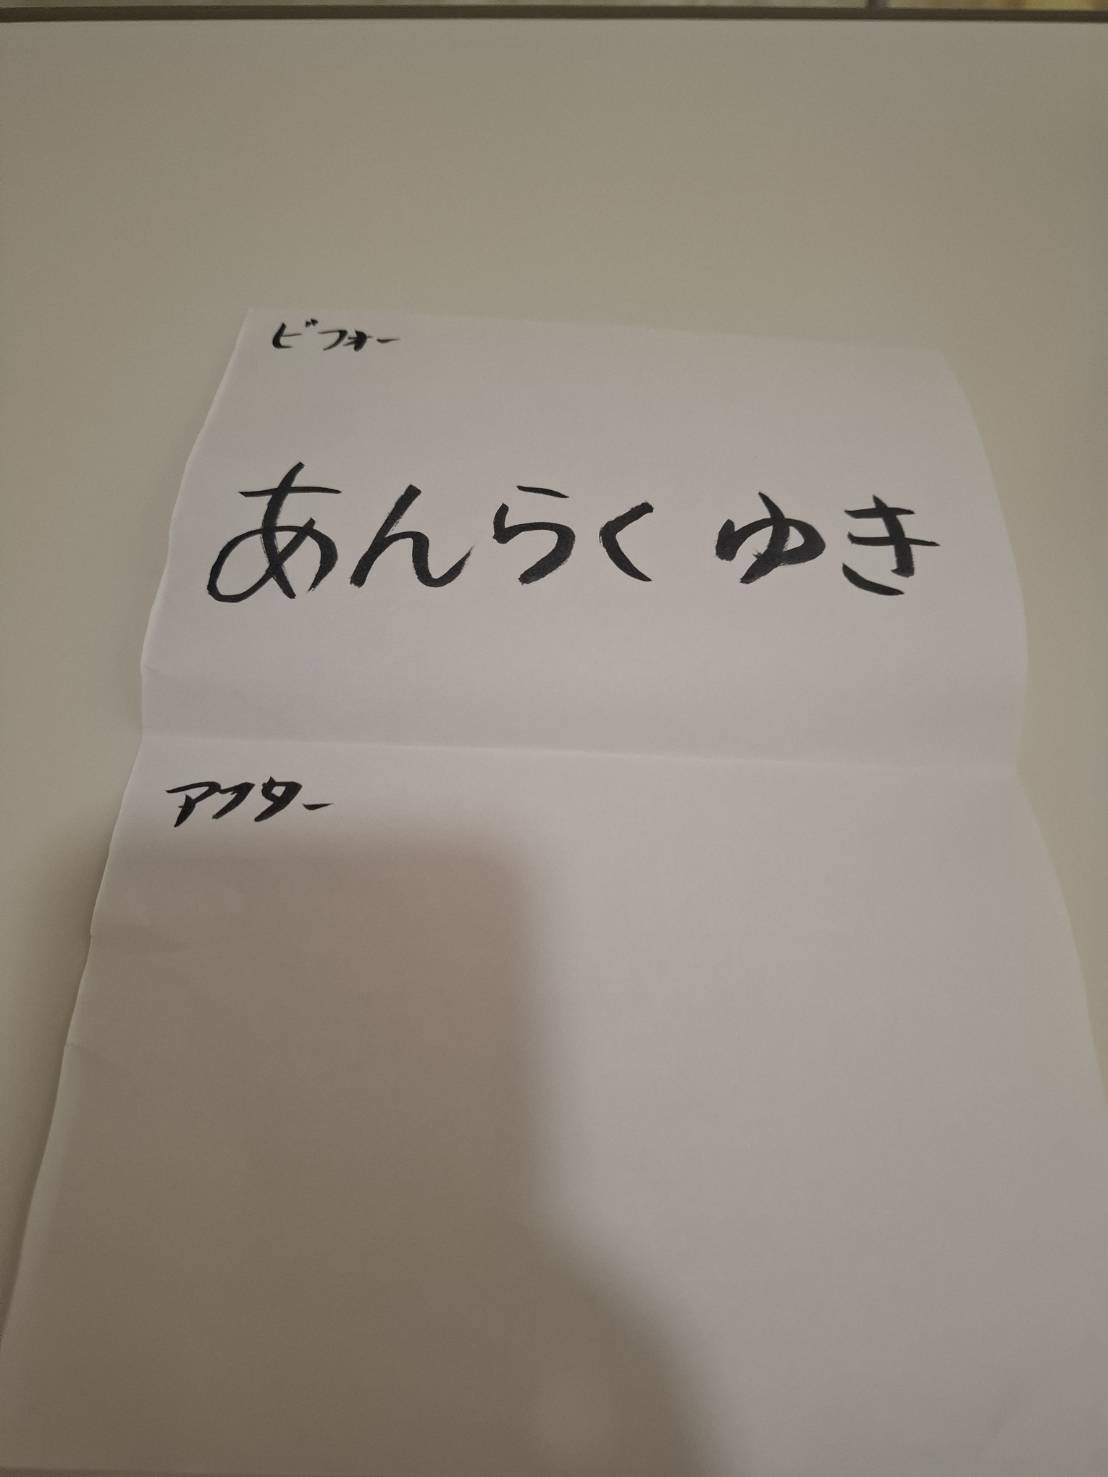 ビフォー
あんらく ゆき
アフター